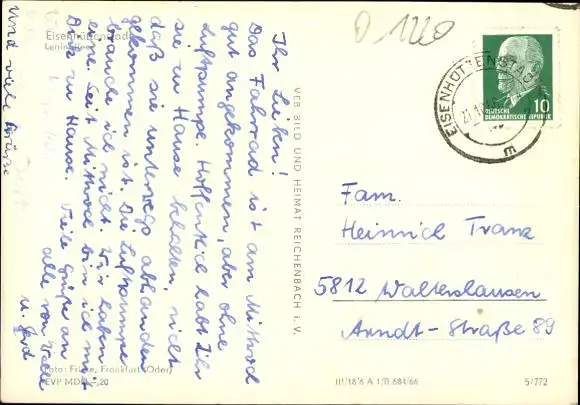 Eisenhüttenstadt
Leninallee
Ihr Lieben!
Das Fahrrad ist am Mittwoch
gut angekommen, aber ohne
Luftpumpe. Hoffentlich habt Ihr
sie zu Hause behalten, nicht
daß sie unterwegs abhanden
gekommen ist. Die Luftpumpe
brauche ich nicht. Wir haben
eine. Seit Mittwoch bin ich mit
zu Hause. Viele Grüße an
alle von
u. Gerd
und viele Grüsse
Foto: Fricke, Frankfurt (Oder)
EVP MDN -,20
VEB BILD UND HEIMAT REICHENBACH i. V.
EISENHÜTTENSTADT
10
DEUTSCHE
DEMOKRATISCHE REPUBLIK
Fam.
Heinrich Tranz
5812 Waltershausen
Arndt-Straße 89
III/18/6 A 1/B 684/66
5/772